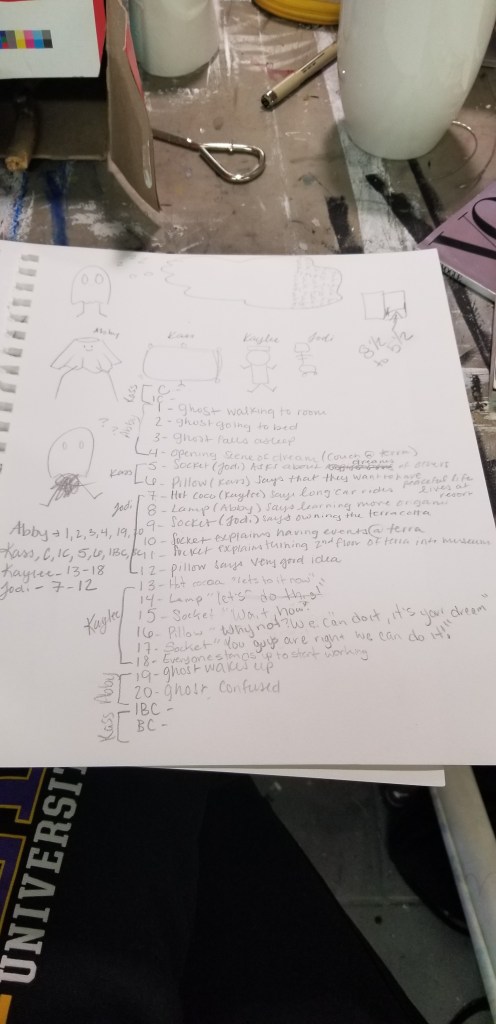 Abby Kass Kaylee Jodi
8 1/2 to 5 1/2
Kass
C -
IC
? ? Abby
1 - ghost walking to room
2 - ghost going to bed
3 - ghost falls asleep
4 - opening scene of dream (couch @ terra)
Kass
5 - Socket (Jodi) Asks about dreams of others
6 - Pillow (Kass) says that they want to have peaceful life
Jodi
7 - Hot Coco (Kaylee) says long car rides lives at resort
8 - Lamp (Abby) Says learning more or game
9 - Socket (Jodi) says owning the terracotta
10 - Socket explains having events @ terra
11 - Socket explains turning 2nd floor of terra into museum
12 - pillow says very good idea
Abby → 1, 2, 3, 4, 19, 20
Kass, C, IC, 5, 6, IBC, BC
Kaylee - 13-18
Jodi - 7-12
Kaylee
13 - Hot cocoa "lets to it now"
14 - Lamp "let's do this!"
15 - Socket "Wait, how?"
16 - Pillow - "Why not? We can do it, it's your dream"
17 - Socket "You guys are right we can do it!"
18 - Everyone stands up to start working
Abby
19 - ghost wakes up
20 - ghost confused
Kass
IBC -
BC -
UNIVERSIT